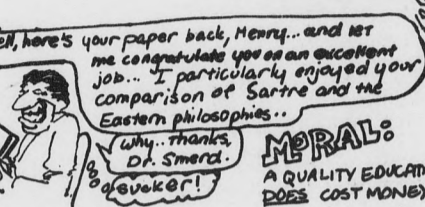 here's your paper back, Henry... and let
me congratulate you on an excellent
job... I particularly enjoyed your
comparison of Sartre and the
Eastern philosophies..
Why.. thanks,
Dr. Smerd.
sucker!
MORAL:
A QUALITY EDUCAT
DOES COST MONEY